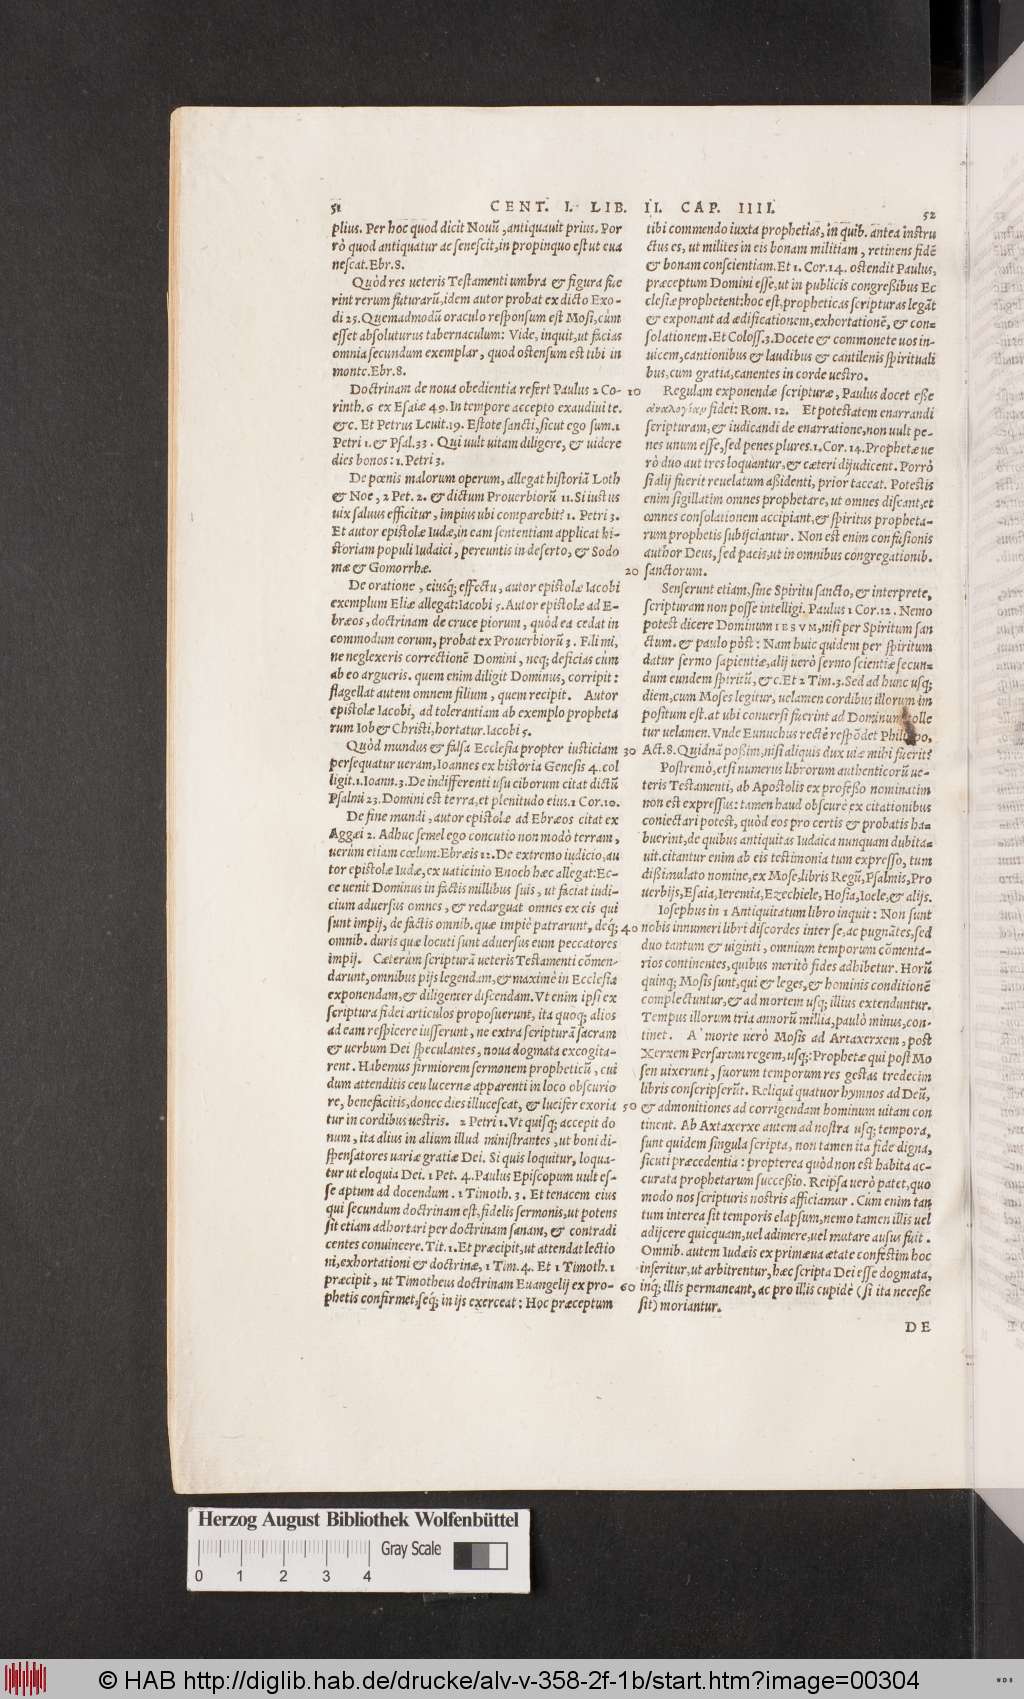 51 CENT. I. LIB. II. CAP. IIII. 52
plius. Per hoc quod dicit Nouũ, antiquauit prius. Por
rò quod antiquatur ac senescit, in propinquo est ut eua
nescat. Ebr. 8.
Quòd res ueteris Testamenti umbra & figura fue
rint rerum futurarũ, idem autor probat ex dicto Exo-
di 25. Quemadmodũ oraculo responsum est Mosi, cùm
esset absoluturus tabernaculum: Vide, inquit, ut facias
omnia secundum exemplar, quod ostensum est tibi in
monte. Ebr. 8.
Doctrinam de noua obedientia refert Paulus 2 Co-
rinth. 6 ex Esaiæ 49. In tempore accepto exaudiui te.
&c. Et Petrus Leuit. 19. Estote sancti, sicut ego sum. 1
Petri 1. & Psal. 33. Qui uult uitam diligere, & uidere
dies bonos: 1. Petri 3.
De pœnis malorum operum, allegat historiã Loth
& Noe, 2 Pet. 2. & dictum Prouerbiorũ 11. Si iustus
uix saluus efficitur, impius ubi comparebit? 1. Petri 3.
Et autor epistolæ Iudæ, in eam sententiam applicat hi-
storiam populi Iudaici, pereuntis in deserto, & Sodo
mæ & Gomorrhæ.
De oratione, eiusq; effectu, autor epistolæ Iacobi
exemplum Eliæ allegat: Iacobi 5. Autor epistolæ ad E-
bræos, doctrinam de cruce piorum, quòd ea cedat in
commodum eorum, probat ex Prouerbiorũ 3. Fili mi,
ne neglexeris correctionẽ Domini, neq; deficias cùm
ab eo argueris. quem enim diligit Dominus, corripit:
flagellat autem omnem filium, quem recipit. Autor
epistolæ Iacobi, ad tolerantiam ab exemplo propheta
rum Iob & Christi, hortatur. Iacobi 5.
Quòd mundus & falsa Ecclesia propter iusticiam
persequatur ueram, Ioannes ex historia Genesis 4. col
ligit. 1. Ioann. 3. De indifferenti usu ciborum citat dictũ
Psalmi 23. Domini est terra, et plenitudo eius. 1 Cor. 10.
De fine mundi, autor epistolæ ad Ebræos citat ex
Aggæi 2. Adhuc semel ego concutio non modò terram,
uerùm etiam cœlum. Ebræis 12. De extremo iudicio, au
tor epistolæ Iudæ, ex uaticinio Enoch hæc allegat: Ec-
ce uenit Dominus in sactis millibus suis, ut faciat iudi-
cium aduersus omnes, & redarguat omnes ex eis qui
sunt impij, de factis omnib. quæ impiè patrarunt, deq́;
omnib. duris quæ locuti sunt aduersus eum peccatores
impij. Cæterùm scripturã ueteris Testamenti cõmen-
darunt, omnibus pijs legendam, & maximè in Ecclesia
exponendam, & diligenter discendam. Vt enim ipsi ex
scriptura fidei articulos proposuerunt, ita quoq; alios
ad eam respicere iusserunt, ne extra scripturã sacram
& uerbum Dei speculantes, noua dogmata excogita-
rent. Habemus firmiorem sermonem propheticũ, cui
dum attenditis ceu lucernæ apparenti in loco obscurio
re, benefacitis, donec dies illucescat, & lucifer exoria
tur in cordibus uestris. 2 Petri 1. Vt quisq; accepit do
num, ita alius in alium illud ministrantes, ut boni di-
spensatores uariæ gratiæ Dei. Si quis loquitur, loqua-
tur ut eloquia Dei. 1 Pet. 4. Paulus Episcopum uult es-
se aptum ad docendum. 1 Timoth. 3. Et tenacem eius
qui secundum doctrinam est, fidelis sermonis, ut potens
sit etiam adhortari per doctrinam sanam, & contradi
centes conuincere. Tit. 1. Et præcipit, ut attendat lectio
ni, exhortationi & doctrinæ, 1 Tim. 4. Et 1 Timoth. 1
præcipit, ut Timotheus doctrinam Euangelij ex pro-
phetis confirmet, seq́; in ijs exerceat: Hoc præceptum
tibi commendo iuxta prophetias, in quib. antea instru
ctus es, ut milites in eis bonam militiam, retinens fidẽ
& bonam conscientiam. Et 1. Cor. 14. ostendit Paulus,
præceptum Domini esse, ut in publicis congreßibus Ec
clesiæ prophetent: hoc est, propheticas scripturas legãt
& exponant ad ædificationem, exhortationẽ, & con-
solationem. Et Coloss. 3. Docete & commonete uos in-
uicem, cantionibus & laudibus & cantilenis spirituali
bus, cum gratia, canentes in corde uestro.
10 Regulam exponendæ scripturæ, Paulus docet eße
ἀναλογίαν fidei: Rom. 12. Et potestatem enarrandi
scripturam, & iudicandi de enarratione, non uult pe-
nes unum esse, sed penes plures. 1. Cor. 14. Prophetæ ue
rò duo aut tres loquantur, & cæteri dijudicent. Porrò
si alij fuerit reuelatum aßidenti, prior taceat. Potestis
enim sigillatim omnes prophetare, ut omnes discant, et
omnes consolationem accipiant, & spiritus propheta-
rum prophetis subijciantur. Non est enim confusionis
author Deus, sed pacis, ut in omnibus côngregationib.
20 sanctorum.
Senserunt etiam, sine Spiritu sancto, & interprete,
scripturam non posse intelligi. Paulus 1 Cor. 12. Nemo
potest dicere Dominum IESVM, nisi per Spiritum san
ctum. & paulo pòst: Nam huic quidem per spiritum
datur sermo sapientiæ, alij uerò sermo scientiæ secun-
dum eundem spiritũ, &c. Et 2 Tim. 3. Sed ad hunc usq;
diem, cum Moses legitur, uelamen cordibus illorum im
positum est. at ubi conuersi fuerint ad Dominum tolle
tur uelamen. Vnde Eunuchus rectè respõdet Philippo,
30 Act. 8. Quidnã poßim, nisi aliquis dux uiæ mihi fuerit?
Postremò, etsi numerus librorum authenticorũ ue-
teris Testamenti, ab Apostolis ex profeßo nominatim
non est expressus: tamen haud obscurè ex citationibus
coniectari potest, quòd eos pro certis & probatis ha-
buerint, de quibus antiquitas Iudaica nunquam dubita-
uit. citantur enim ab eis testimonia tum expresso, tum
dißimulato nomine, ex Mose, libris Regũ, Psalmis, Pro
uerbijs, Esaia, Ieremia, Ezechiele, Hosia, Ioele, & alijs.
Iosephus in 1 Antiquitatum libro inquit: Non sunt
40 nobis innumeri libri discordes inter se, ac pugnãtes, sed
duo tantum & uiginti, omnium temporum cõmenta-
rios continentes, quibus meritò fides adhibetur. Horũ
quinq; Mosis sunt, qui & leges, & hominis conditionẽ
complectuntur, & ad mortem usq; illius extenduntur.
Tempus illorum tria annorũ millia, paulò minus, con-
tinet. A' morte uerò Mosis ad Artaxerxem, post
Xerxem Persarum regem, usq;: Prophetæ qui post Mo
sen uixerunt, suorum temporum res gestas tredecim
libris conscripserũt. Reliqui quatuor hymnos ad Deũ,
50 & admonitiones ad corrigendam hominum uitam con
tinent. Ab Axtaxerxe autem ad nostra usq; tempora,
sunt quidem singula scripta, non tamen ita fide digna,
sicuti præcedentia: propterea quòd non est habita ac-
curata prophetarum succeßio. Reipsa uerò patet, quo
modo nos scripturis nostris afficiamur. Cum enim tan
tum interea sit temporis elapsum, nemo tamen illis uel
adijcere quicquam, uel adimere, uel mutare ausus fuit.
Omnib. autem Iudæis ex primæua ætate confestim hoc
inseritur, ut arbitrentur, hæc scripta Dei esse dogmata,
60 inq́; illis permaneant, ac pro illis cupidè (si ita necesse
sit) moriantur.
DE
Herzog August Bibliothek Wolfenbüttel
Gray Scale
0 1 2 3 4
© HAB http://diglib.hab.de/drucke/alv-v-358-2f-1b/start.htm?image=00304